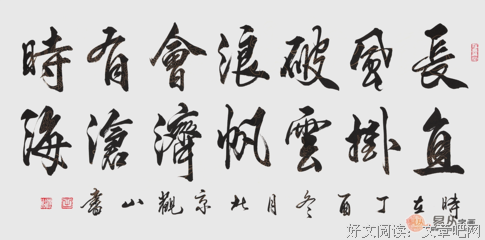 長風破浪會有時
直掛雲帆濟滄海
時在丁酉冬月北京觀山書
好文阅读:文章吧网